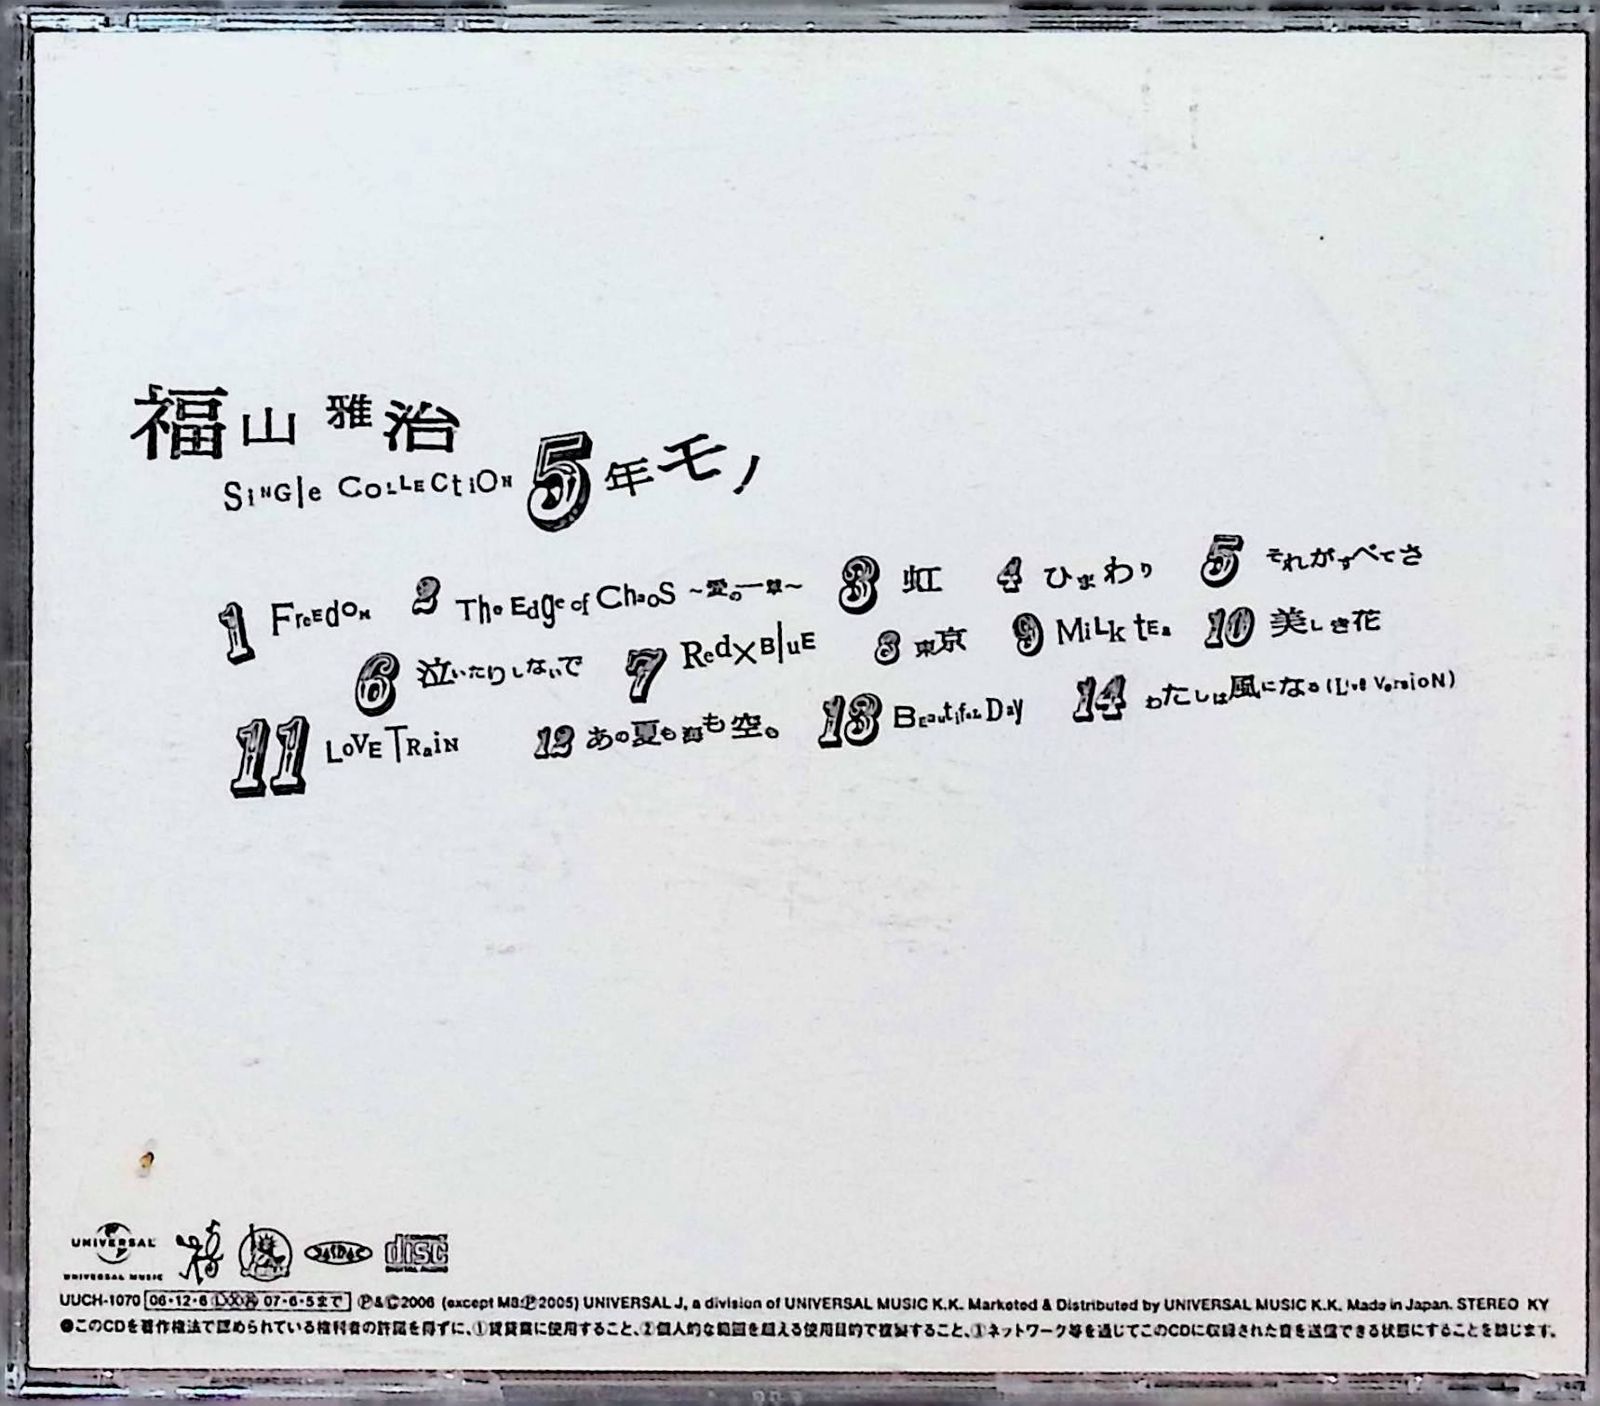 福山雅治
SiNGle COLLECtiON 5年モノ
1 FreEdoM 2 The Edge of ChaoS ～愛の一撃～ 3 虹 4 ひまわり 5 それがすべてさ
6 泣いたりしないで 7 Red×BluE 8 東京 9 MiLk tEa 10 美しき花
11 LoVE TRaiN 12 あの夏も海も空も 13 BEautifuL Day 14 わたしは風になる (LiVe VersioN)
UNIVERSAL
UNIVERSAL MUSIC
JASRAC
disc
DIGITAL AUDIO
UUCH-1070 06・12・6 07・6・5まで Ⓟ&Ⓒ2006 (except M8:Ⓟ2005) UNIVERSAL J, a division of UNIVERSAL MUSIC K.K. Marketed & Distributed by UNIVERSAL MUSIC K.K. Made in Japan. STEREO KY
●このCDを著作権法で認められている権利者の許諾を得ずに、①賃貸業に使用すること、②個人的な範囲を超える使用目的で複製すること、③ネットワーク等を通じてこのCDに収録された音を送信できる状態にすることを禁じます。